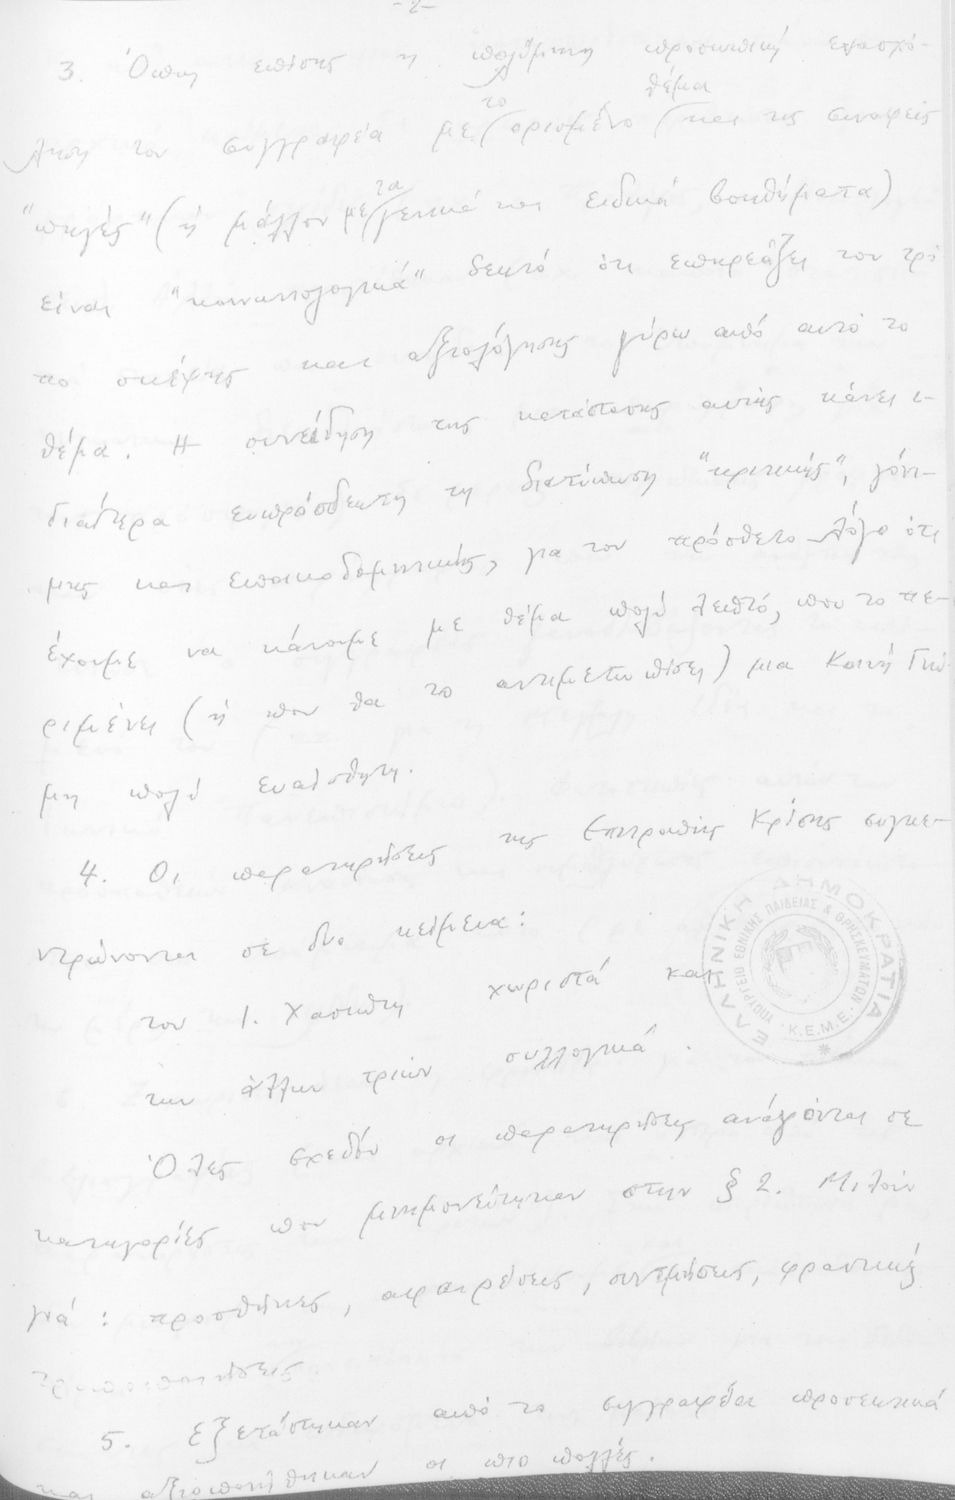 -2-
3. Όπως επίσης η πολύμηνη προσωπική ενασχό-
ληση του συγγραφέα με το ορισμένο θέμα και τις συναφείς
"πηγές" (ή μάλλον με τα γενικά και ειδικά βοηθήματα)
είναι "κοινωνιολογικά" δεκτό ότι επηρεάζει τον τρό
πο σκέψης και αξιολόγησης γύρω από αυτό το
θέμα. Η συνείδηση της κατάστασης αυτής κάνει ι-
διαίτερα ευπρόσδεκτη τη διατύπωση "κριτικής", γόνι-
μης και εποικοδομητικής, για τον πρόσθετο λόγο ότι
έχουμε να κάνουμε με θέμα πολύ λεπτό, που το πε-
ριμένει (ή που θα το αντιμετωπίσει) μια Κοινή Γνώ-
μη πολύ ευαίσθητη.
4. Οι παρατηρήσεις της Επιτροπής Κρίσης συγκε-
ντρώνονται σε δυο κείμενα:
του Ι. Χασιώτη χωριστά και
των άλλων τριών συλλογικά.
Όλες σχεδόν οι παρατηρήσεις ανάγονται σε
κατηγορίες που μνημονεύτηκαν στην § 2. Μιλούν
γιά: προσθήκες, αφαιρέσεις, συντμήσεις, φραστικές
τροποποιήσεις.
5. Εξετάστηκαν από το συγγραφέα προσεκτικά
και αξιοποιήθηκαν οι πιο πολλές.
ΕΛΛΗΝΙΚΗ ΔΗΜΟΚΡΑΤΙΑ
ΥΠΟΥΡΓΕΙΟ ΕΘΝΙΚΗΣ ΠΑΙΔΕΙΑΣ & ΘΡΗΣΚΕΥΜΑΤΩΝ
Κ.Ε.Μ.Ε.